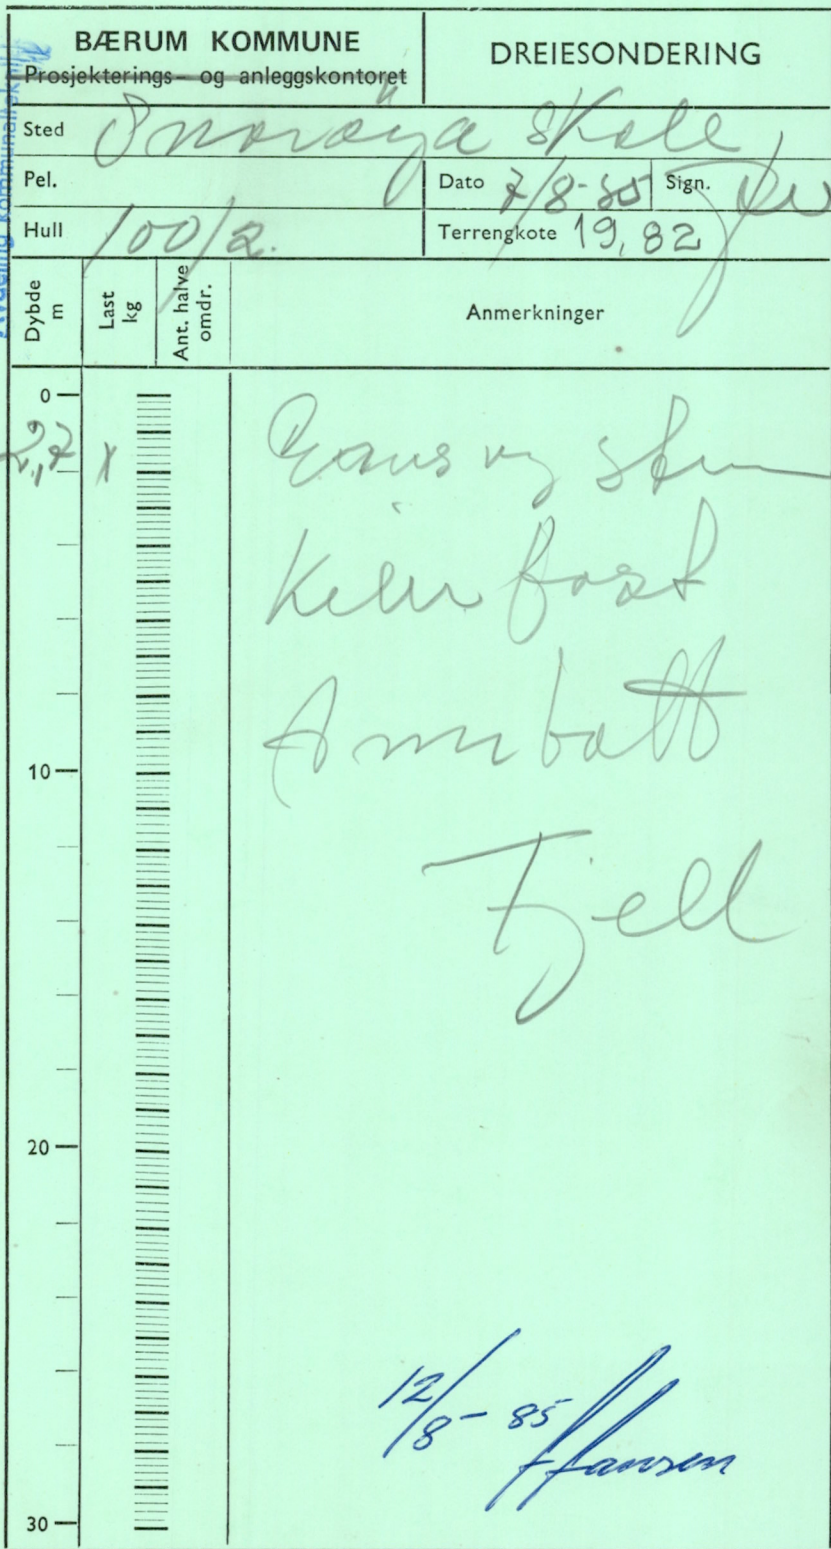 BÆRUM KOMMUNE
Prosjekterings- og anleggskontoret
DREIESONDERING
Sted Snarøya skole
Pel.
Dato 7/8-85 Sign.
Hull 100/2.
Terrengkote 19,82
Dybde m
Last kg
Ant. halve omdr.
Anmerkninger
0
2,7 x
og
fast
10
Fjell
20
12/8-85
Hansen
30